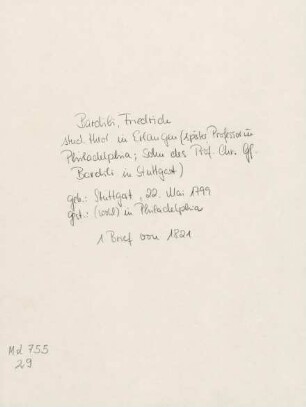 Bardili, Friedrich
stud. theol. in Erlangen (später Professor in
Philadelphia; Sohn des Prof. Chr. Gf.
Bardili in Stuttgart)
geb.: Stuttgart, 22. Mai 1799
gest.: (wohl) in Philadelphia
1 Brief von 1821
Md 755
29